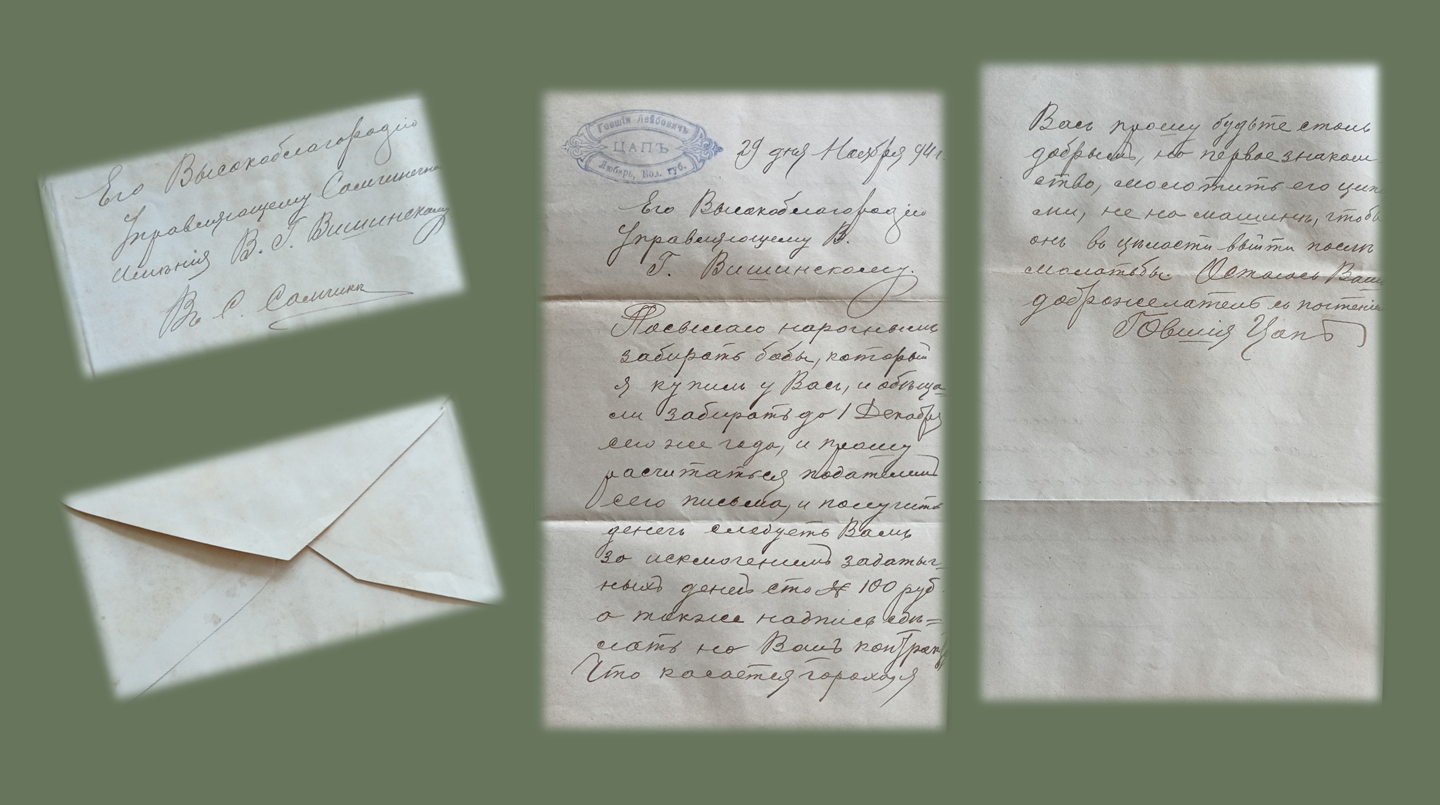 Его Высокоблагородію
Управляющему Самчинск
имѣнія В. Г. Вишинскому
Въ С. Самчики
Говшія Лейбовичъ
ЦАПЪ
Любаръ, Вол. губ.
29 дня Ноября 94 г.
Его Высокоблагородію
Управляющему В.
Г. Вишинскому.
Посылаю нарочнымъ
забирать бобы, который
я купилъ у Васъ, и обѣща
ли забирать до 1 Декабря
сего же года, и прошу
расчитаться подателимъ
сего письма, и получить
денегъ слѣдуетъ Вамъ
за исключеніимъ задаточ=
ныхъ денегъ сто 100 руб
а также надпись сдѣ=
лать на Вашъ контрак
Что касается гороха, я
Васъ прошу будьте столь
добрымъ, на первое знаком
ство, молотить его цип
ми, не на машинѣ, чтобъ
онъ въ цѣлости выйти послѣ
молатьбы. Остаюсь Ваш
доброжелатель съ почтені
Говшія Цапъ